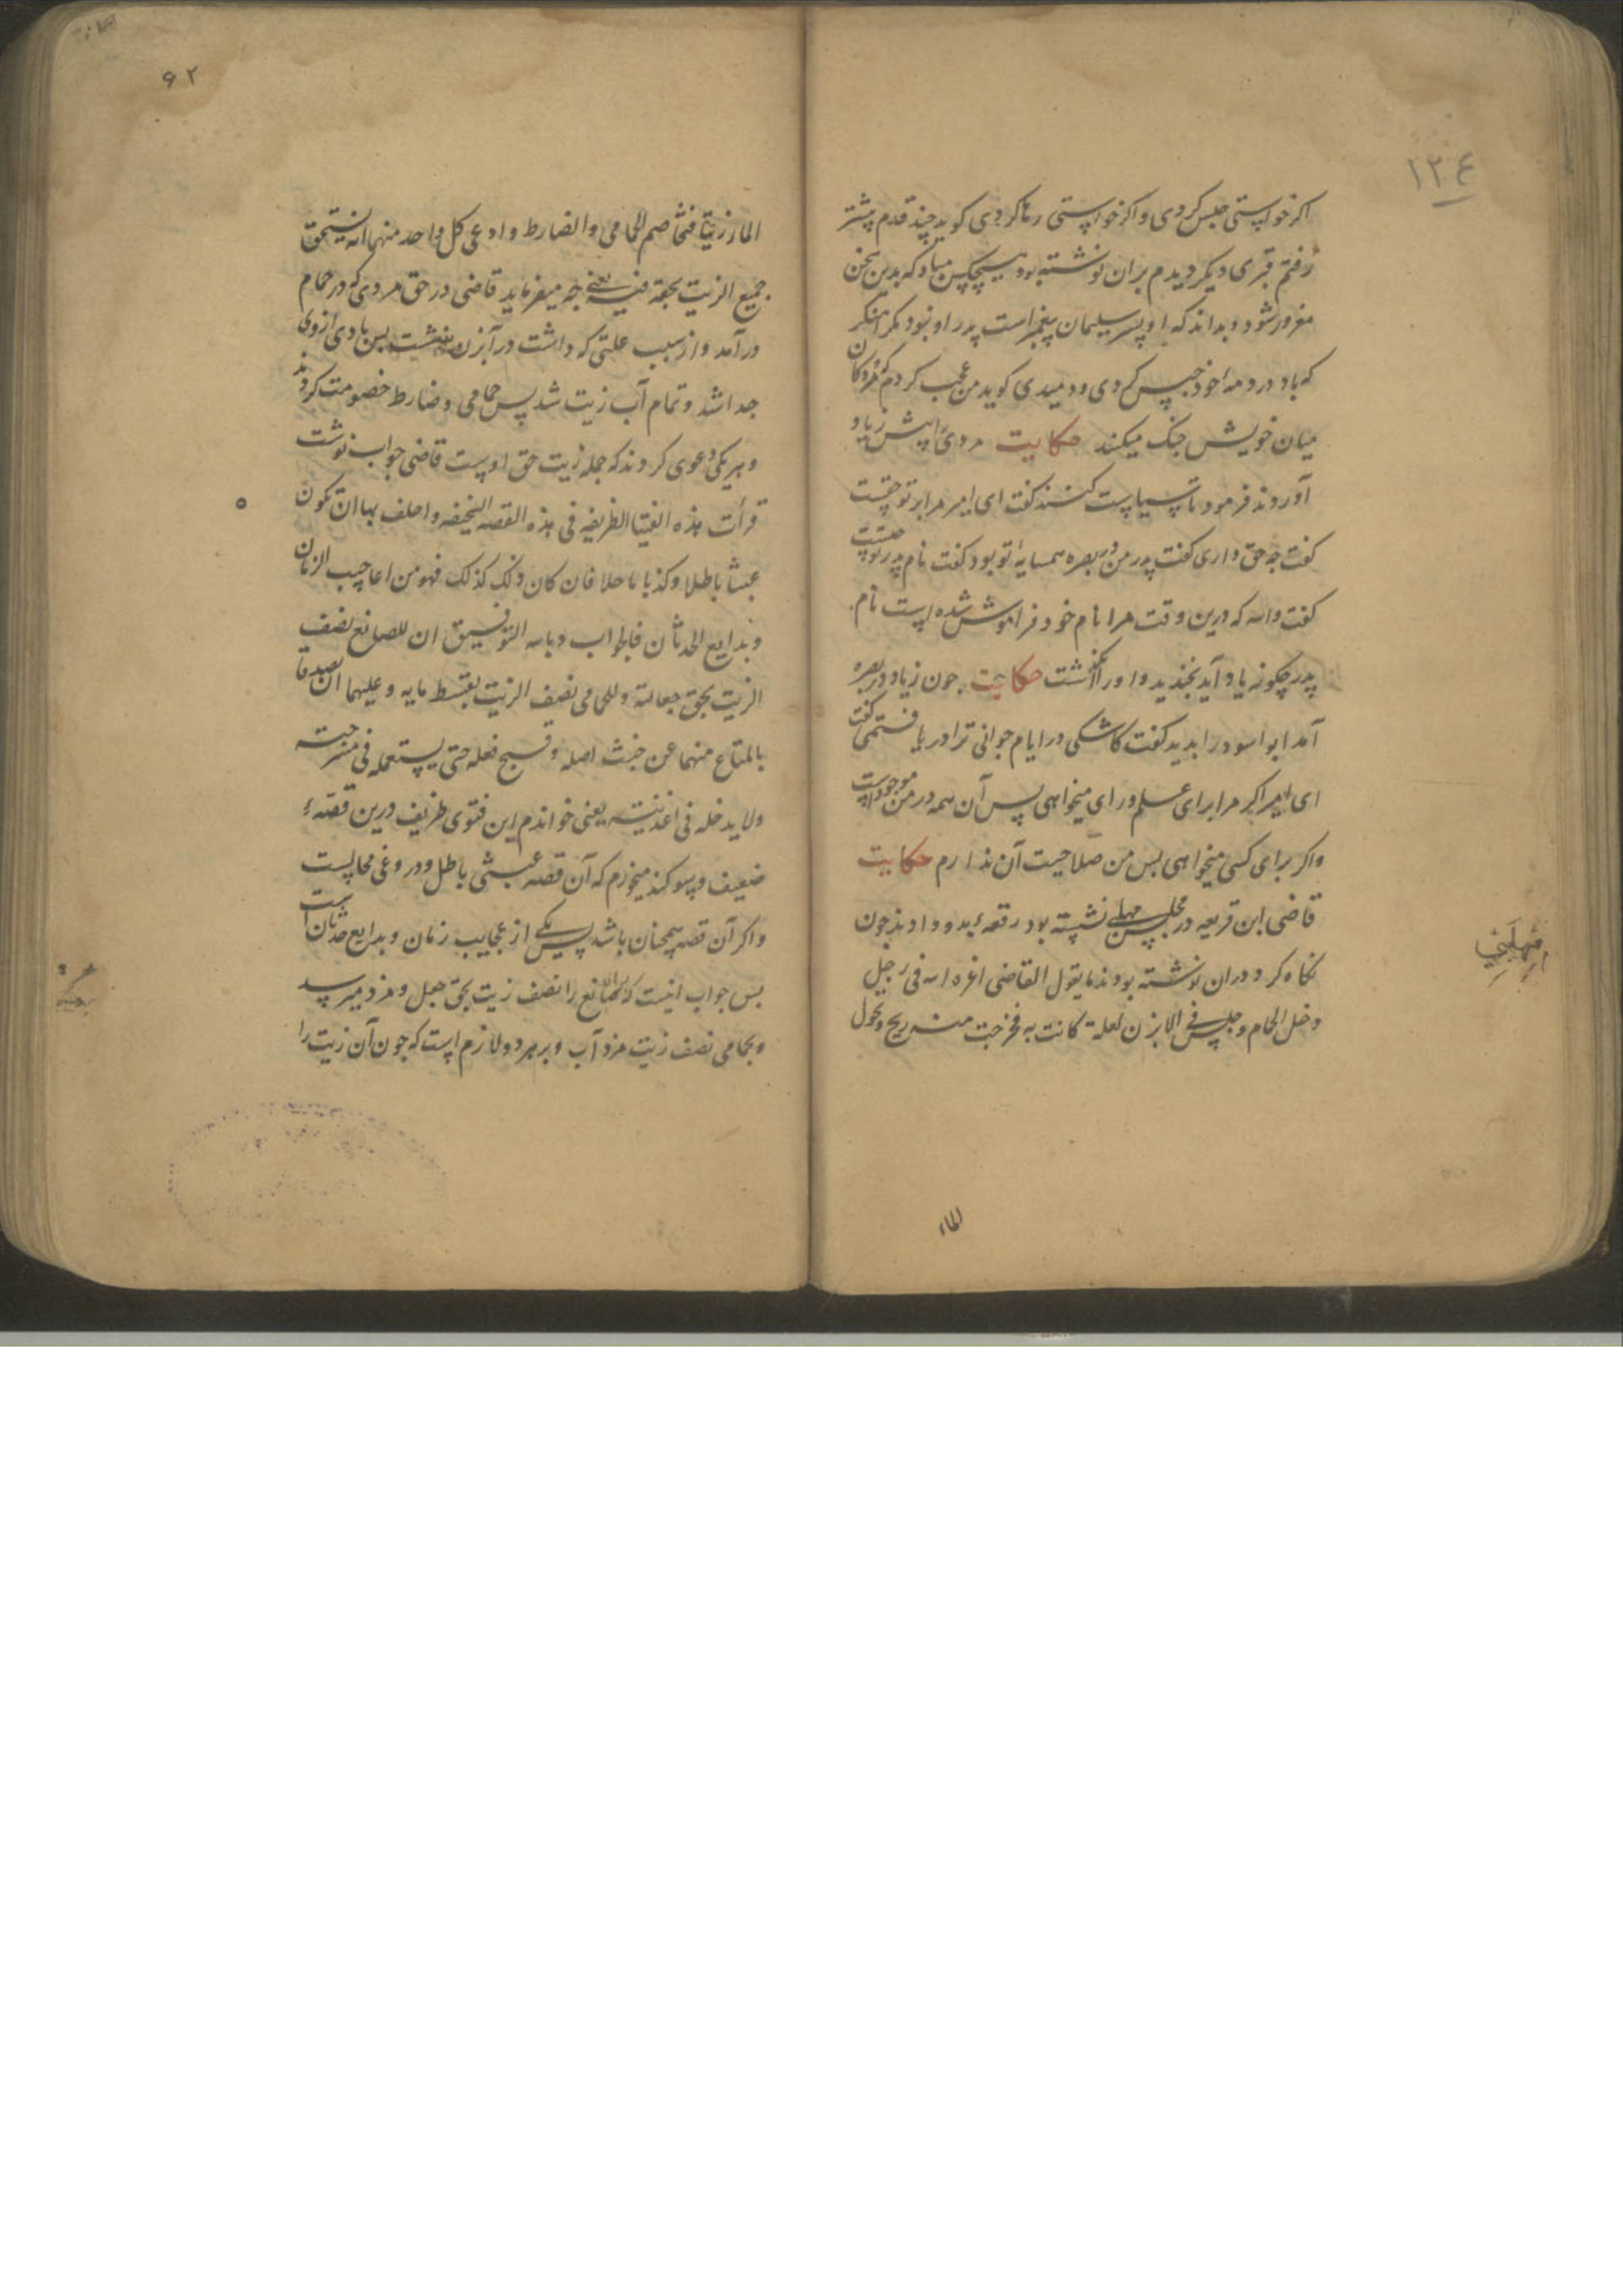 ۱۲۴
اکر خواستی حبس کردی واکر خواستی رها کردی کوید چند قدم پیشتر
رفتم قبری دیکر دیدم بران نوشته بود هیچکس مباد که بدین سخن
مغرور شود و بداند که او پسر سلیمان پیغمبر است پدر او نبود مکر آهنکر
که باد در دمه خود حبس کردی و دمیدی کوید من عجب کردم که مردکان
میان خویش جنک میکنند حکایت مردی را پیش زیاد
آوردند فرمود تا سیاست کنند کفت ای امیر مرا بر تو حقیست
کفت چه حق داری کفت پدر من در بصره همسایهٔ تو بود کفت نام پدر تو چیست
کفت والله که درین وقت مرا نام خود فراموش شده است نام
پدر چکونه یاد آید بخندید و او را بکذاشت حکایت چون زیاد در بصره
آمد ابو اسود را بدید کفت کاشکی در ایام جوانی ترا دریافتمی کفت
ای امیر اکر مرا برای علم و رای میخواهی پس آن همه در من موجود است
واکر برای کسی میخواهی پس من صلاحیت آن ندارم حکایت
قاضی ابن قریعه در مجلس مهلبی نشسته بود رقعهٔ بدو دادند چون
نکاه کرد دران نوشته بودند ما یقول القاضی اعزه الله فی رجل
دخل الحمام وجلس فی الابزن لعلة کانت به فخرجت منه ریح وتحول
مهلبی
الماء
۶۲
الماء زیتا فتخاصم الحمامی والضارط وادعی کل واحد منهما انه یستحق
جمیع الزیت بحقه فیه یعنی چه میفرماید قاضی در حق مردی که در حمام
درآمد واز سبب علتی که داشت در آبزن بنشست پس بادی ازوی
جدا شد وتمام آب زیت شد پس حمامی وضارط خصومت کردند
وهریکی دعوی کردند که جمله زیت حق اوست قاضی جواب نوشت
قرأت هذه الفتیا الظریفه فی هذه القصه السخیفه واحلف بها ان تکون
عبثا باطلا وکذبا ماحلا فان کان ذلک کذلک فهو من اعاجیب الزمان
وبدایع الحدثان فالجواب وبالله التوفیق ان للصانع نصف
الزیت بحق جعالته وللحمامی نصف الزیت بقسط مایه وعلیهما ان یصدقا
بالمتاع منهما عن خبث اصله وقبح فعله حتی یستعمله فی مسرجته
ولا یدخله فی اغذیته یعنی خواندم این فتوی ظریف درین قصهٔ
ضعیف وسوکند میخورم که آن قصه عبثی باطل ودروغی محالست
واکر آن قصه همچنان باشد پس یکی از عجایب زمان وبدایع حدثان است
پس جواب اینست که صانع را نصف زیت بحق جعل ومزد میرسد
وبحمامی نصف زیت مزد آب وبر هردو لازم است که چون آن زیت را